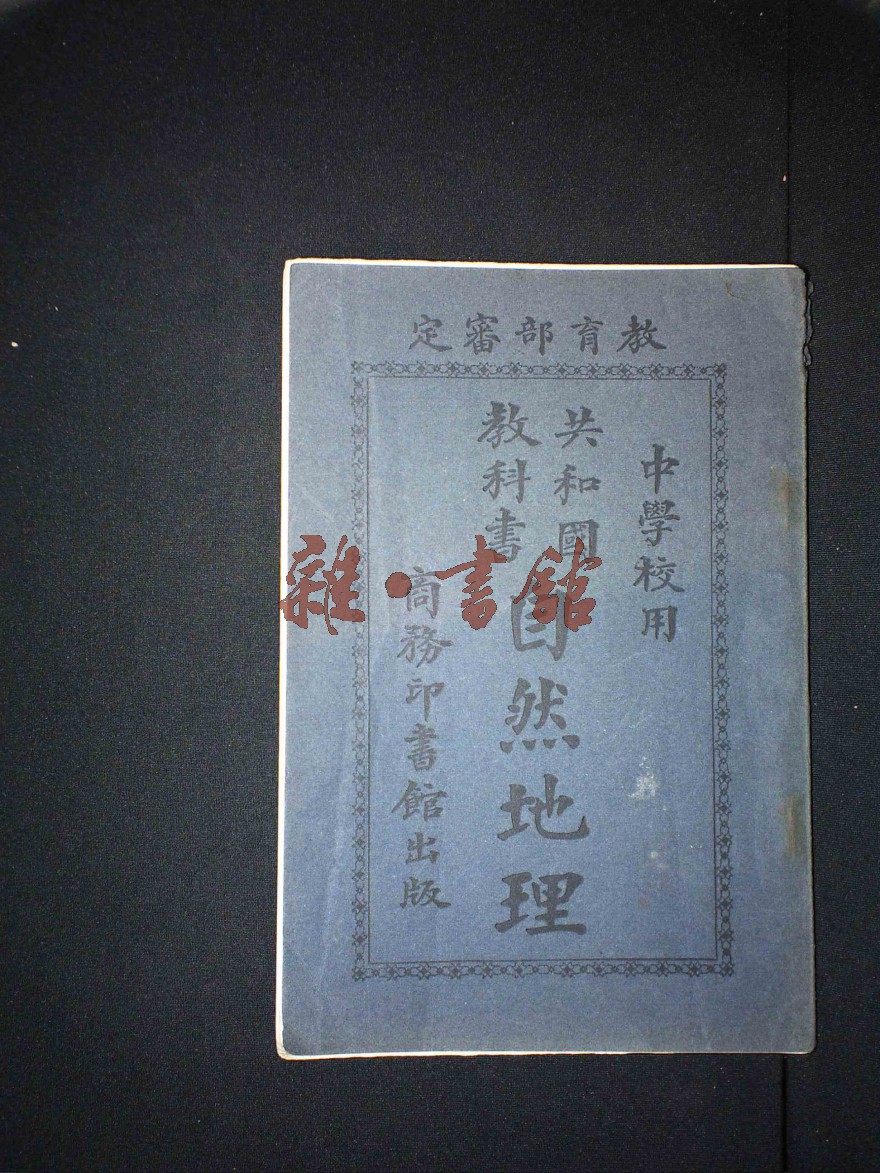 教育部審定
中學校用
共和國
教科書
自然地理
商務印書館出版
雜·書館